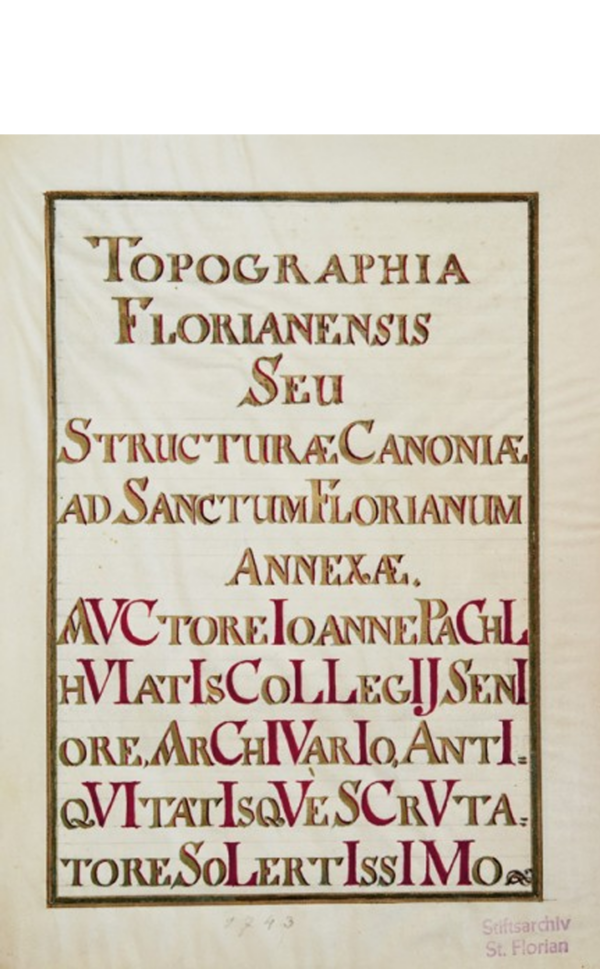 TOPOGRAPHIA
FLORIANENSIS
SEU
STRUCTURÆ CANONIÆ
AD SANCTUM FLORIANUM
ANNEXÆ.
AVCTORE IOANNE PACHL
HVIATIS COLLEGIJ SENI
ORE, ARCHIVARIO, ANTI=
QVITATISQVÈ SCRVTA=
TORE SOLERTISSIMO
1743
Stiftsarchiv
St. Florian